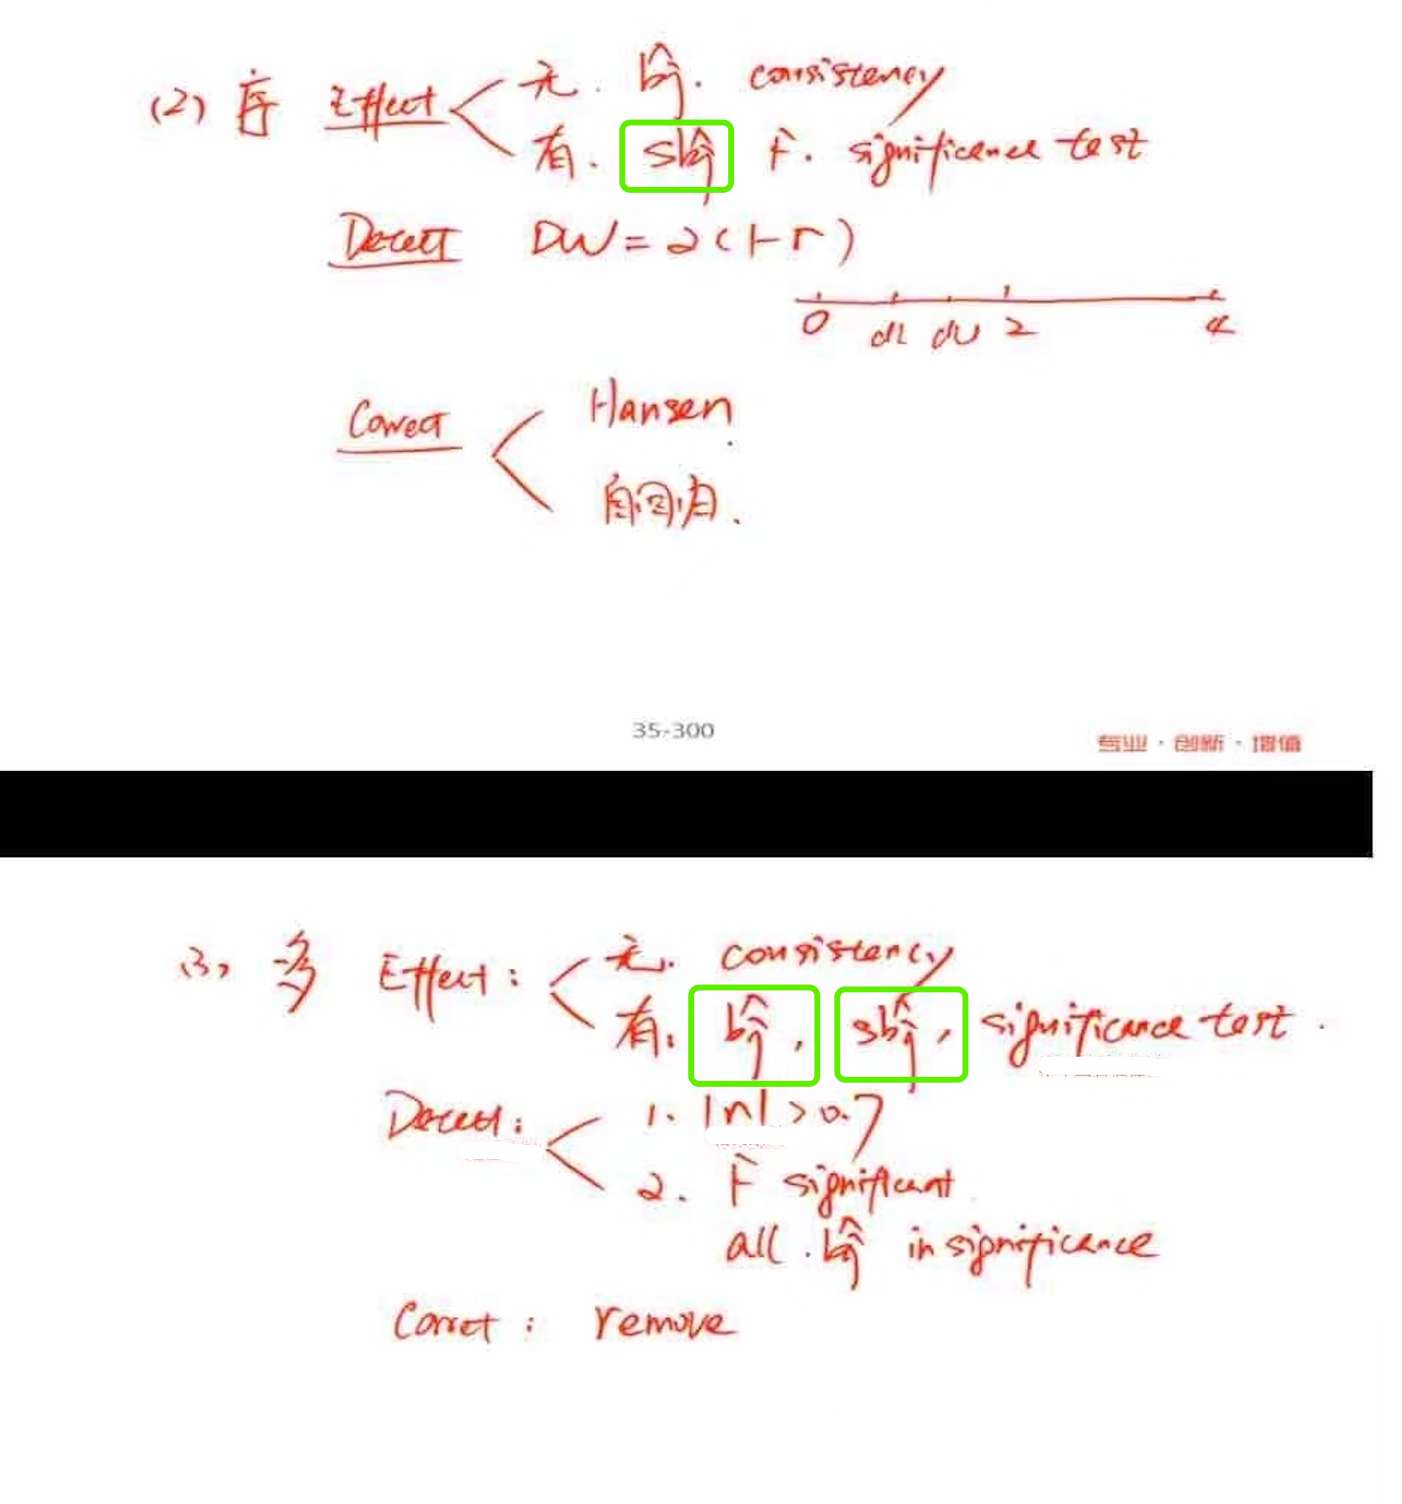 (2) 序 Effect 无. b̂j. consistency
有. sb̂j F. significance test
Detect DW=2(1-r)
0 dl du 2 4
Correct Hansen
自回归.
35-300
专业·创新·增值
(3) 多 Effect: 无. consistency
有: b̂j, sb̂j, significance test.
Detect: 1. |r|>0.7
2. F significant
all. b̂j insignificance
Correct: remove